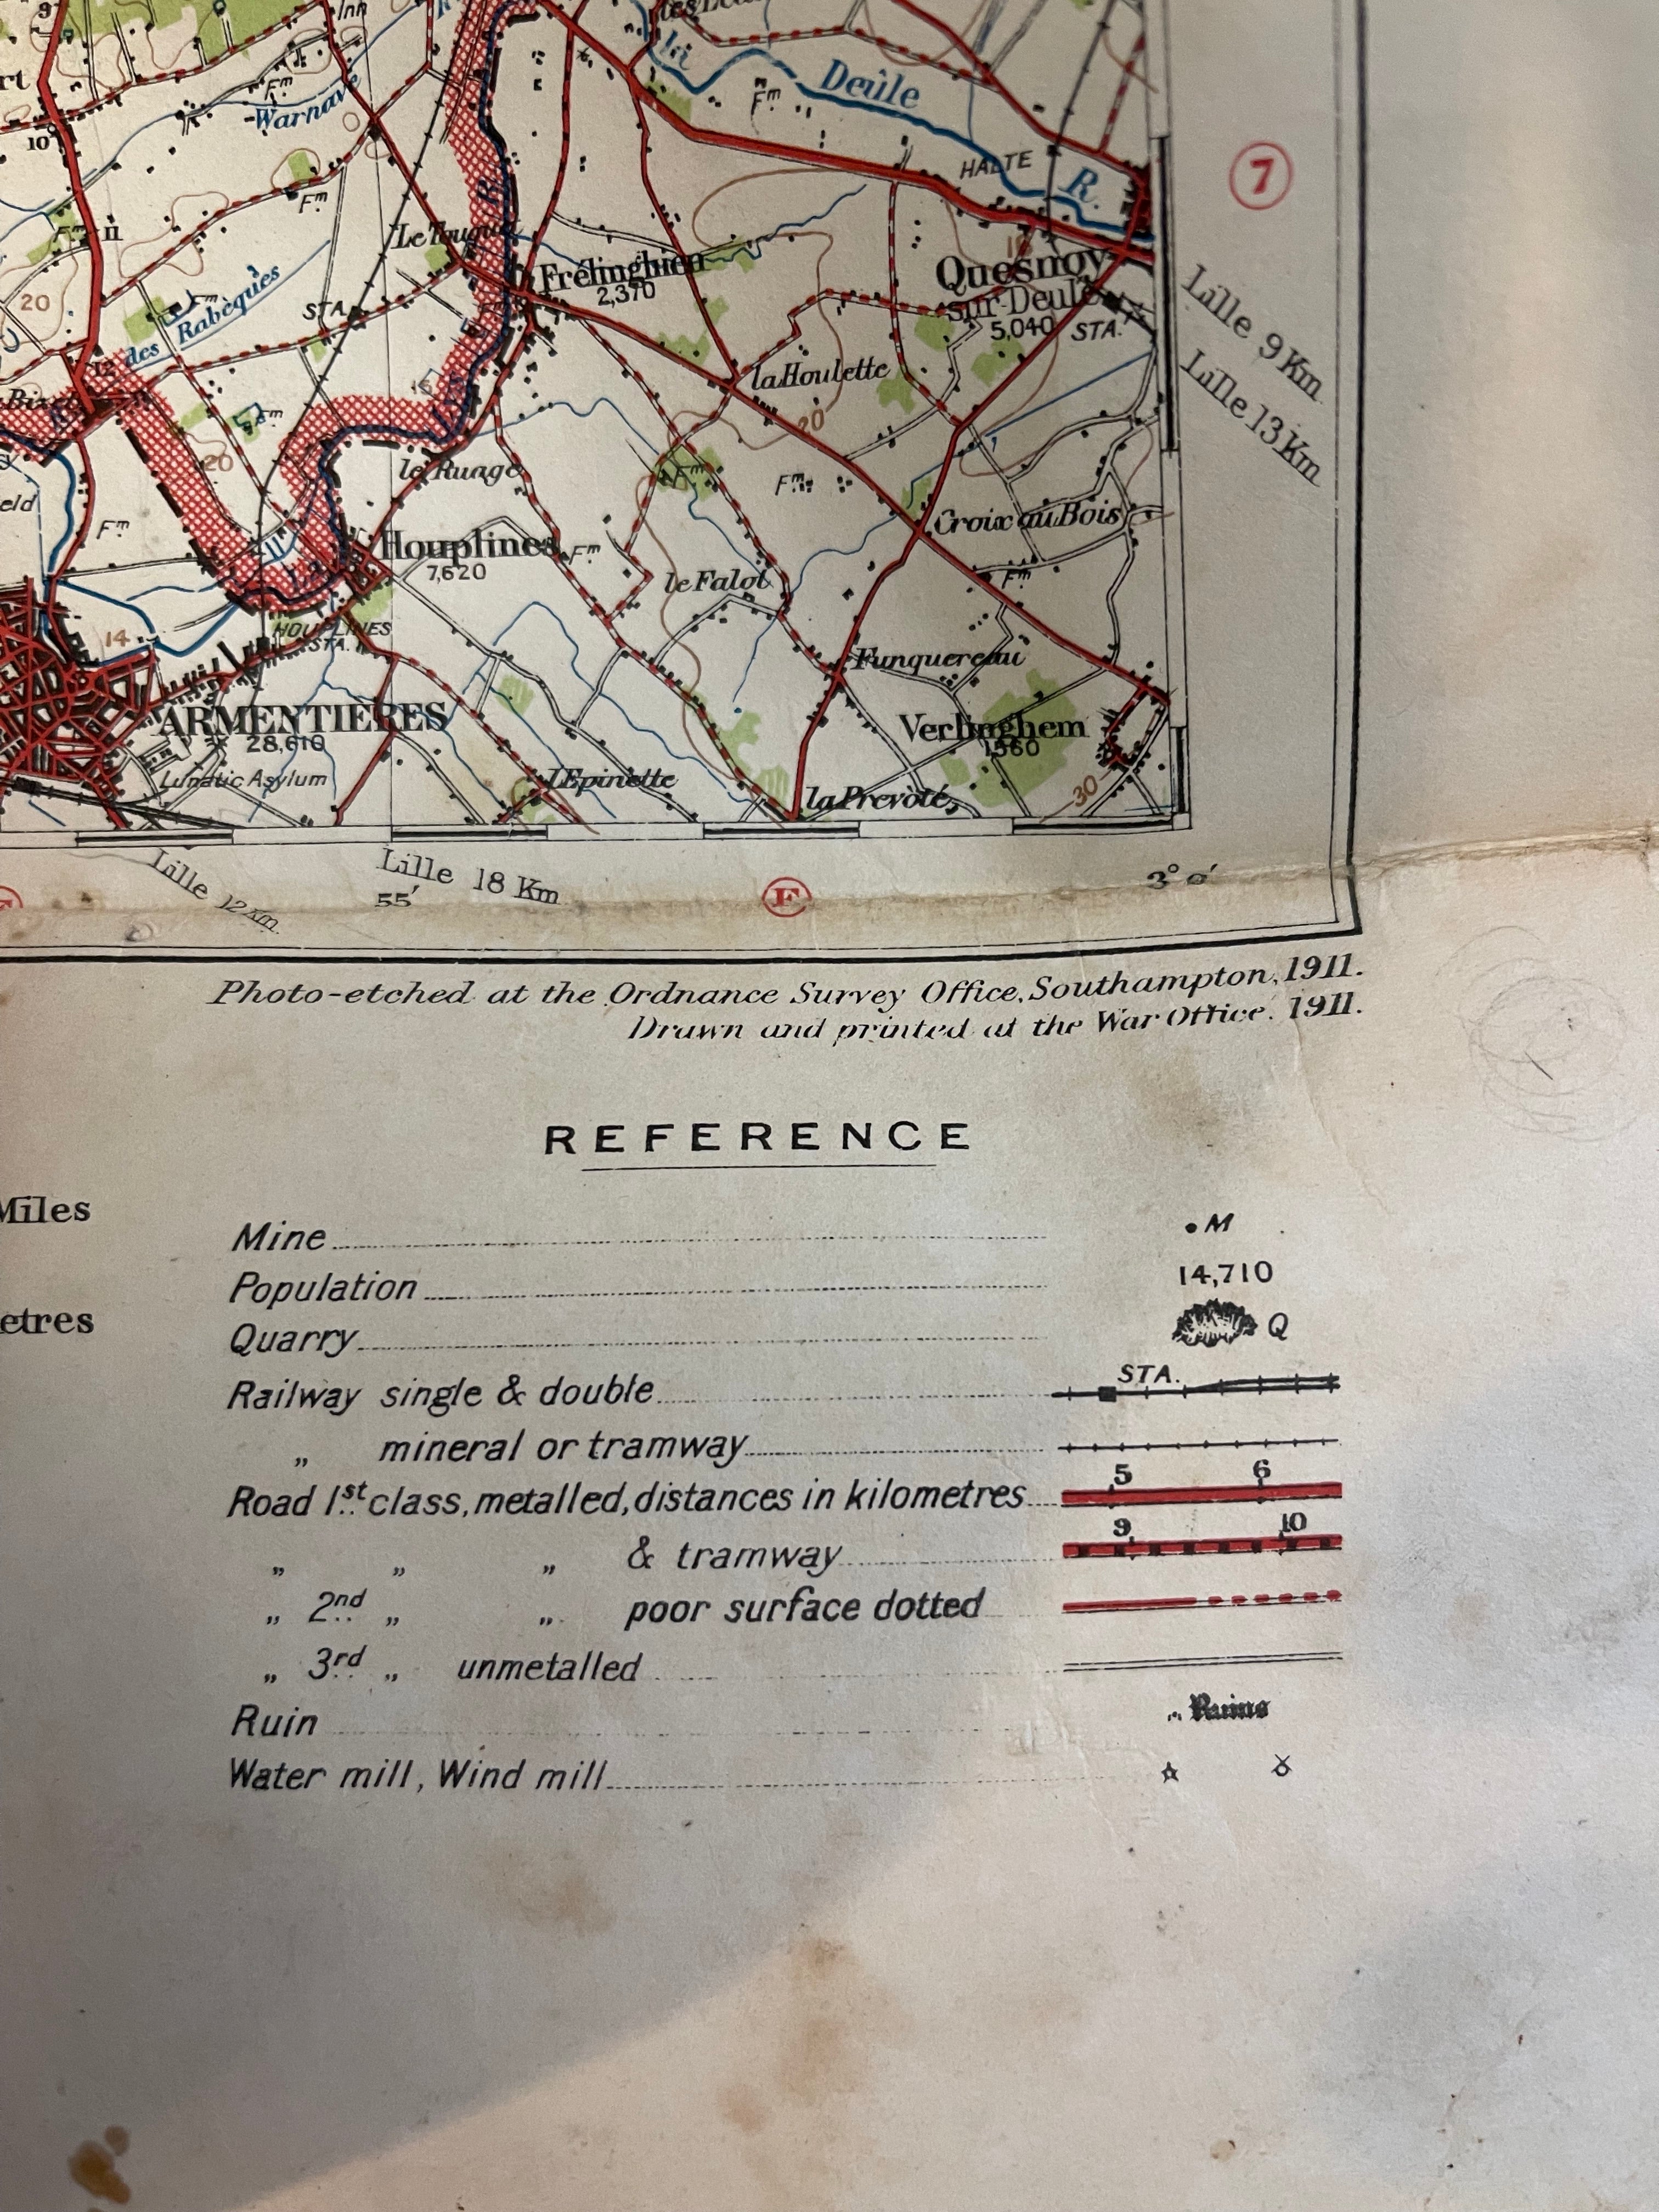 9
Inn
rt
Warnave
Fm
la
Deûle
Fm
10
HALTE
R.
7
Fm
R.
11
Le Touquet
Fm
Frélinghien
2,370
Quesnoy
sur-Deûle
5,040
STA.
20
Fm
des Rabèques
STA.
Lille 9 Km
Lille 13 Km
12
la Houlette
Fm
20
20
le Ruage
Fm
Fm
eld
Fm
Croix au Bois
Houplines
7,620
Fm
le Falot
Fm
HOUPLINES
STA.
14
Funquereau
ARMENTIÈRES
28,610
Verlinghem
1560
Lunatic Asylum
l'Epinette
la Prevôté
30
Lille 12 Km.
Lille 18 Km
55′
E
3° 0′
Photo-etched at the Ordnance Survey Office, Southampton, 1911.
Drawn and printed at the War Office. 1911.
REFERENCE
Miles
etres
Mine • M
Population 14,710
Quarry Q
Railway single & double STA.
„ mineral or tramway
Road 1st class, metalled, distances in kilometres 5 6
„ „ „ & tramway 9 10
„ 2nd „ „ poor surface dotted
„ 3rd „ unmetalled
Ruin Ruins
Water mill, Wind mill